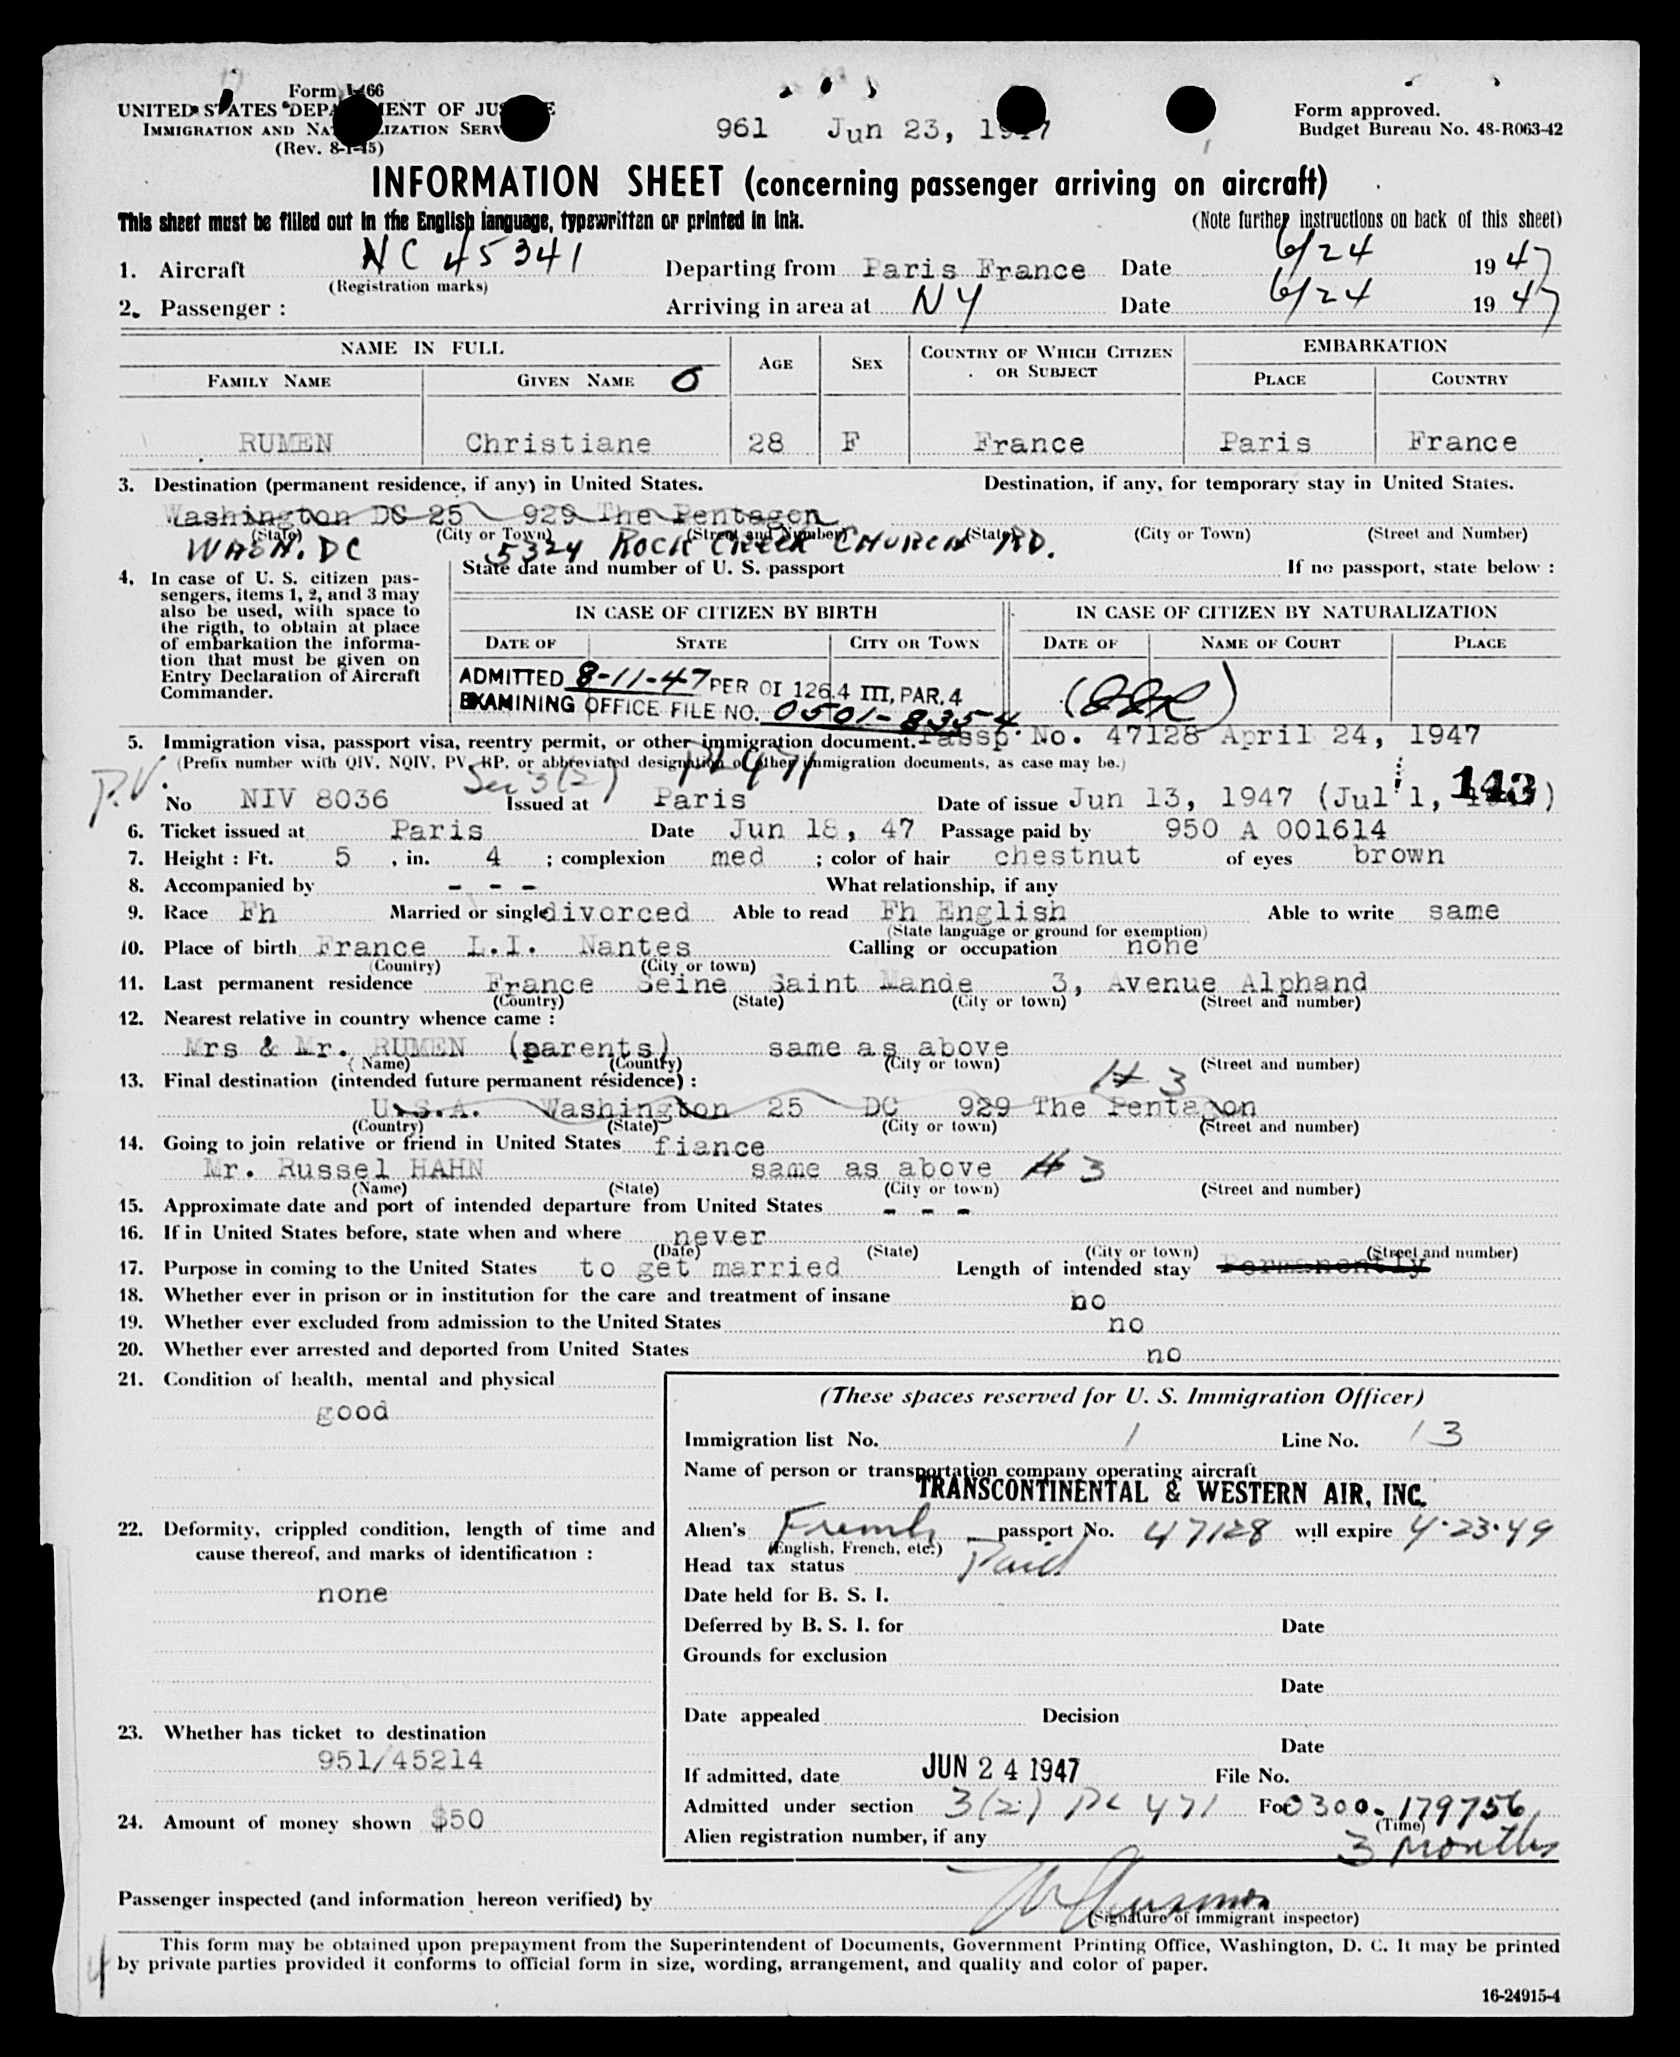 Form I-466
UNITED STATES DEPARTMENT OF JUSTICE
IMMIGRATION AND NATURALIZATION SERVICE
(Rev. 8-1-45)
961 Jun 23, 1947
Form approved.
Budget Bureau No. 48-R063-42
INFORMATION SHEET (concerning passenger arriving on aircraft)
This sheet must be filled out in the English language, typewritten or printed in ink. (Note further instructions on back of this sheet)
1. Aircraft NC 45341 Departing from Paris France Date 6/24 1947
(Registration marks)
2. Passenger : Arriving in area at NY Date 6/24 1947
NAME IN FULL AGE SEX COUNTRY OF WHICH CITIZEN OR SUBJECT EMBARKATION
FAMILY NAME GIVEN NAME PLACE COUNTRY
RUMEN Christiane 28 F France Paris France
3. Destination (permanent residence, if any) in United States. Destination, if any, for temporary stay in United States.
Washington DC 25 929 The Pentagon
(State) (City or Town) (Street and Number) (State) (City or Town) (Street and Number)
WASH. DC 5324 ROCK CREEK CHURCH RD.
4. In case of U. S. citizen pas-
sengers, items 1, 2, and 3 may
also be used, with space to
the rigth, to obtain at place
of embarkation the informa-
tion that must be given on
Entry Declaration of Aircraft
Commander.
State date and number of U. S. passport If no passport, state below :
IN CASE OF CITIZEN BY BIRTH IN CASE OF CITIZEN BY NATURALIZATION
DATE OF STATE CITY OR TOWN DATE OF NAME OF COURT PLACE
ADMITTED 8-11-47 PER OI 126.4 III, PAR. 4
EXAMINING OFFICE FILE NO. 0501-8354
5. Immigration visa, passport visa, reentry permit, or other immigration document. Passp. No. 47128 April 24, 1947
(Prefix number with QIV, NQIV, PV, RP, or abbreviated designation of other immigration documents, as case may be.)
P.V. Sec 3(2) PL 471
No NIV 8036 Issued at Paris Date of issue Jun 13, 1947 (Jul 1, 143)
6. Ticket issued at Paris Date Jun 18, 47 Passage paid by 950 A 001614
7. Height : Ft. 5 , in. 4 ; complexion med ; color of hair chestnut of eyes brown
8. Accompanied by - - - What relationship, if any
9. Race Fh Married or single divorced Able to read Fh English Able to write same
(State language or ground for exemption)
10. Place of birth France L.I. Nantes Calling or occupation none
(Country) (City or town)
11. Last permanent residence France Seine Saint Mande 3, Avenue Alphand
(Country) (State) (City or town) (Street and number)
12. Nearest relative in country whence came :
Mrs & Mr. RUMEN (parents) same as above
(Name) (Country) (City or town) (Street and number)
13. Final destination (intended future permanent résidence) : # 3
U.S.A. Washington 25 DC 929 The Pentagon
(Country) (State) (City or town) (Street and number)
14. Going to join relative or friend in United States fiance
Mr. Russel HAHN same as above # 3
(Name) (State) (City or town) (Street and number)
15. Approximate date and port of intended departure from United States - - -
16. If in United States before, state when and where never
(Date) (State) (City or town) (Street and number)
17. Purpose in coming to the United States to get married Length of intended stay Permanently
18. Whether ever in prison or in institution for the care and treatment of insane no
19. Whether ever excluded from admission to the United States no
20. Whether ever arrested and deported from United States no
21. Condition of health, mental and physical
good
22. Deformity, crippled condition, length of time and
cause thereof, and marks of identification :
none
23. Whether has ticket to destination
951/45214
24. Amount of money shown $50
(These spaces reserved for U. S. Immigration Officer)
Immigration list No. 1 Line No. 13
Name of person or transportation company operating aircraft
TRANSCONTINENTAL & WESTERN AIR, INC.
Alien's French passport No. 47128 will expire 4-23-49
(English, French, etc.)
Head tax status Paid
Date held for B. S. I.
Deferred by B. S. I. for Date
Grounds for exclusion
Date
Date appealed Decision
Date
If admitted, date JUN 24 1947 File No.
Admitted under section 3(2) PL 471 For 0300-179756
(Time)
Alien registration number, if any 3 months
Passenger inspected (and information hereon verified) by
(Signature of immigrant inspector)
This form may be obtained upon prepayment from the Superintendent of Documents, Government Printing Office, Washington, D. C. It may be printed
by private parties provided it conforms to official form in size, wording, arrangement, and quality and color of paper.
4
16-24915-4